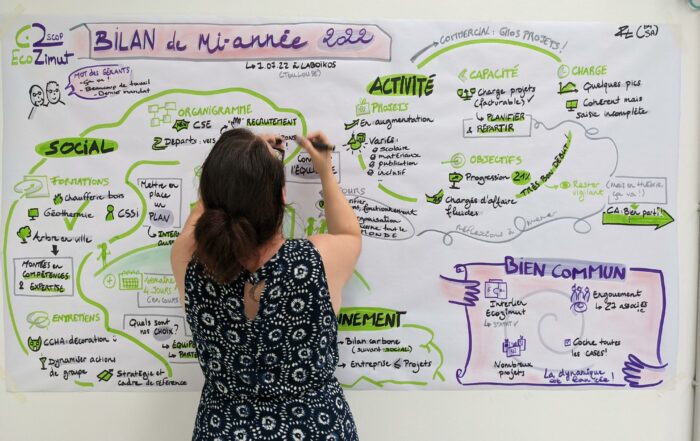 SCOP
EcoZimut
BILAN de Mi-année 2022
↳ 1.07.22 à LABOÏKOS
(TOULOUSE)
MOT DES GÉRANTS
- Ça va !
- Beaucoup de travail
- Dernier mandat
SOCIAL
ORGANIGRAMME
CSE
RECRUTEMENT
Départs : vers
FORMATIONS
Chaufferie bois
Géothermie
CSSi
Arbre en ville
MONTÉES en
COMPÉTENCES
& EXPERTISE
Mettre en
place
un
PLAN
ENTRETIENS
CCHA : décoration
Dynamiser actions
de groupe
Stratégie et
cadre de référence
4 JOURS
Quels sont
nos CHOIX ?
NNEMENT
Bilan carbone
(suivant SOCIAL)
Entreprise & Projets
ACTIVITÉ
COMMERCIAL : GROS PROJETS !
PROJETS
En augmentation
Variés
scolaire
matériaux
publication
inclusif
Chargés d'affaire
fluides
CAPACITÉ
Charge projets
(facturable)
↳ PLANIFIER
& RÉPARTIR
CHARGE
Quelques pics
Cohérent mais
saisie incomplète
OBJECTIFS
Progression 21%
TRÈS BON DÉBUT
Rester
vigilant
(mais en théorie,
ça va !)
CA : Bien parti !!
réflexions à mener
BIEN COMMUN
Interlien
Ecozimut
↳ STATUT
Engouement
↳ 27 associés
Nombreux
projets
Coche toutes
les cases !
La dynamique
est lancée !